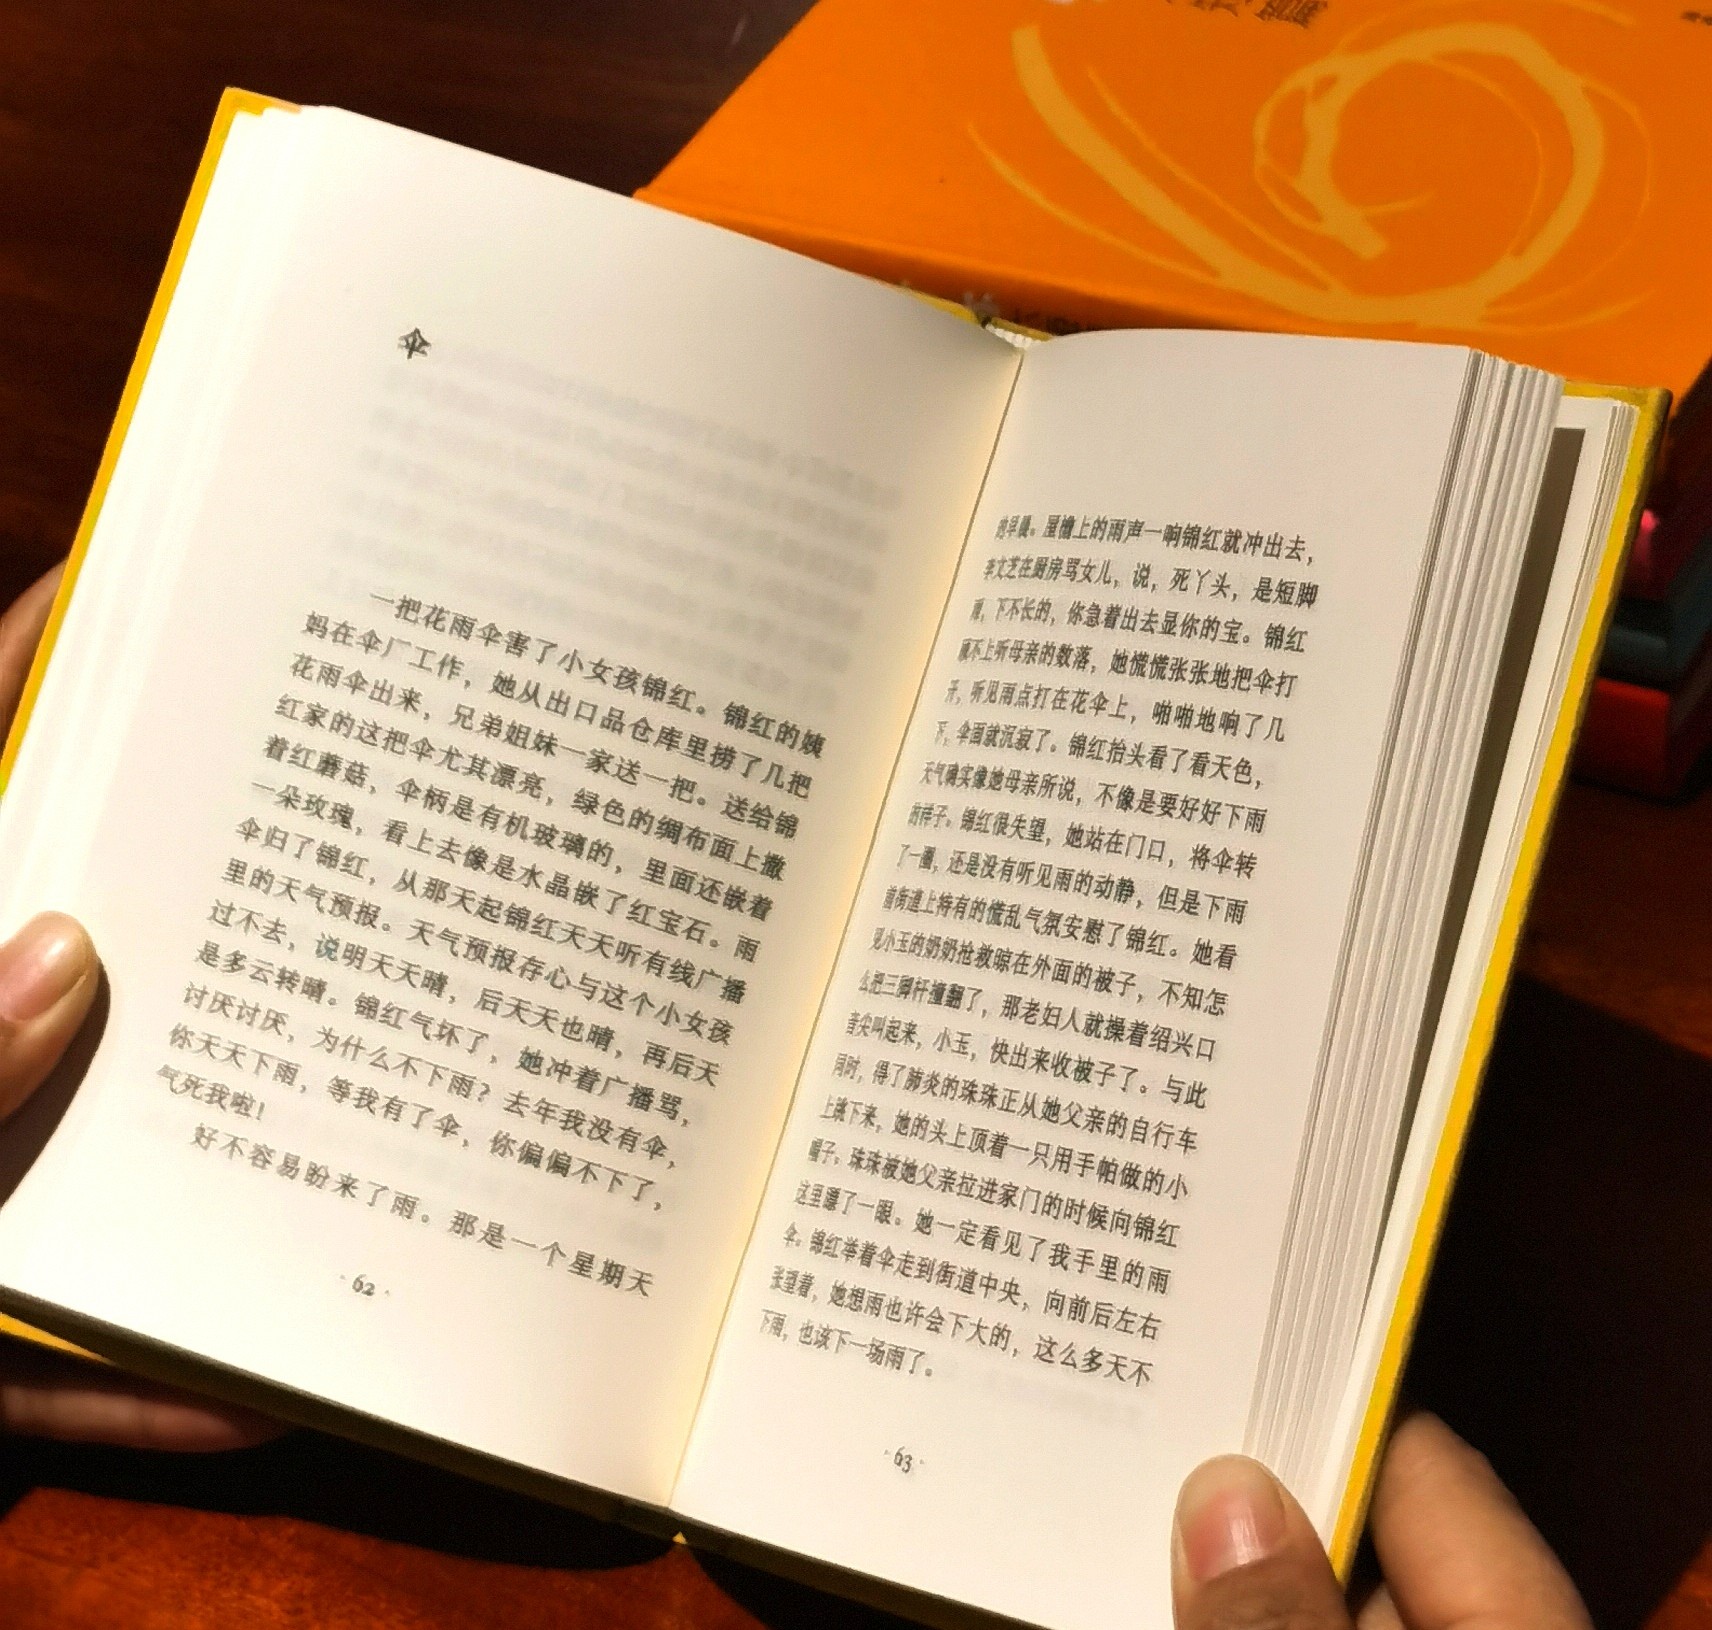 伞
一把花雨伞害了小女孩锦红。锦红的姨
妈在伞厂工作，她从出口品仓库里捞了几把
花雨伞出来，兄弟姐妹一家送一把。送给锦
红家的这把伞尤其漂亮，绿色的绸布面上撒
着红蘑菇，伞柄是有机玻璃的，里面还嵌着
一朵玫瑰，看上去像是水晶嵌了红宝石。雨
伞归了锦红，从那天起锦红天天听有线广播
里的天气预报。天气预报存心与这个小女孩
过不去，说明天天晴，后天天也晴，再后天
是多云转晴。锦红气坏了，她冲着广播骂，
讨厌讨厌，为什么不下雨？去年我没有伞，
你天天下雨，等我有了伞，你偏偏不下了，
气死我啦！
好不容易盼来了雨。那是一个星期天
·62·
的早晨。屋檐上的雨声一响锦红就冲出去，
李文芝在厨房骂女儿，说，死丫头，是短脚
雨，下不长的，你急着出去显你的宝。锦红
顾不上听母亲的数落，她慌慌张张地把伞打
开，听见雨点打在花伞上，啪啪地响了几
下，伞面就沉寂了。锦红抬头看了看天色，
天气确实像她母亲所说，不像是要好好下雨
的样子。锦红很失望，她站在门口，将伞转
了一圈，还是没有听见雨的动静，但是下雨
前街道上特有的慌乱气氛安慰了锦红。她看
见小玉的奶奶抢救晾在外面的被子，不知怎
么把三脚杆撞翻了，那老妇人就操着绍兴口
音尖叫起来，小玉，快出来收被子了。与此
同时，得了肺炎的珠珠正从她父亲的自行车
上跳下来，她的头上顶着一只用手帕做的小
帽子。珠珠被她父亲拉进家门的时候向锦红
这里瞟了一眼。她一定看见了我手里的雨
伞。锦红举着伞走到街道中央，向前后左右
张望着，她想雨也许会下大的，这么多天不
下雨，也该下一场雨了。
·63·